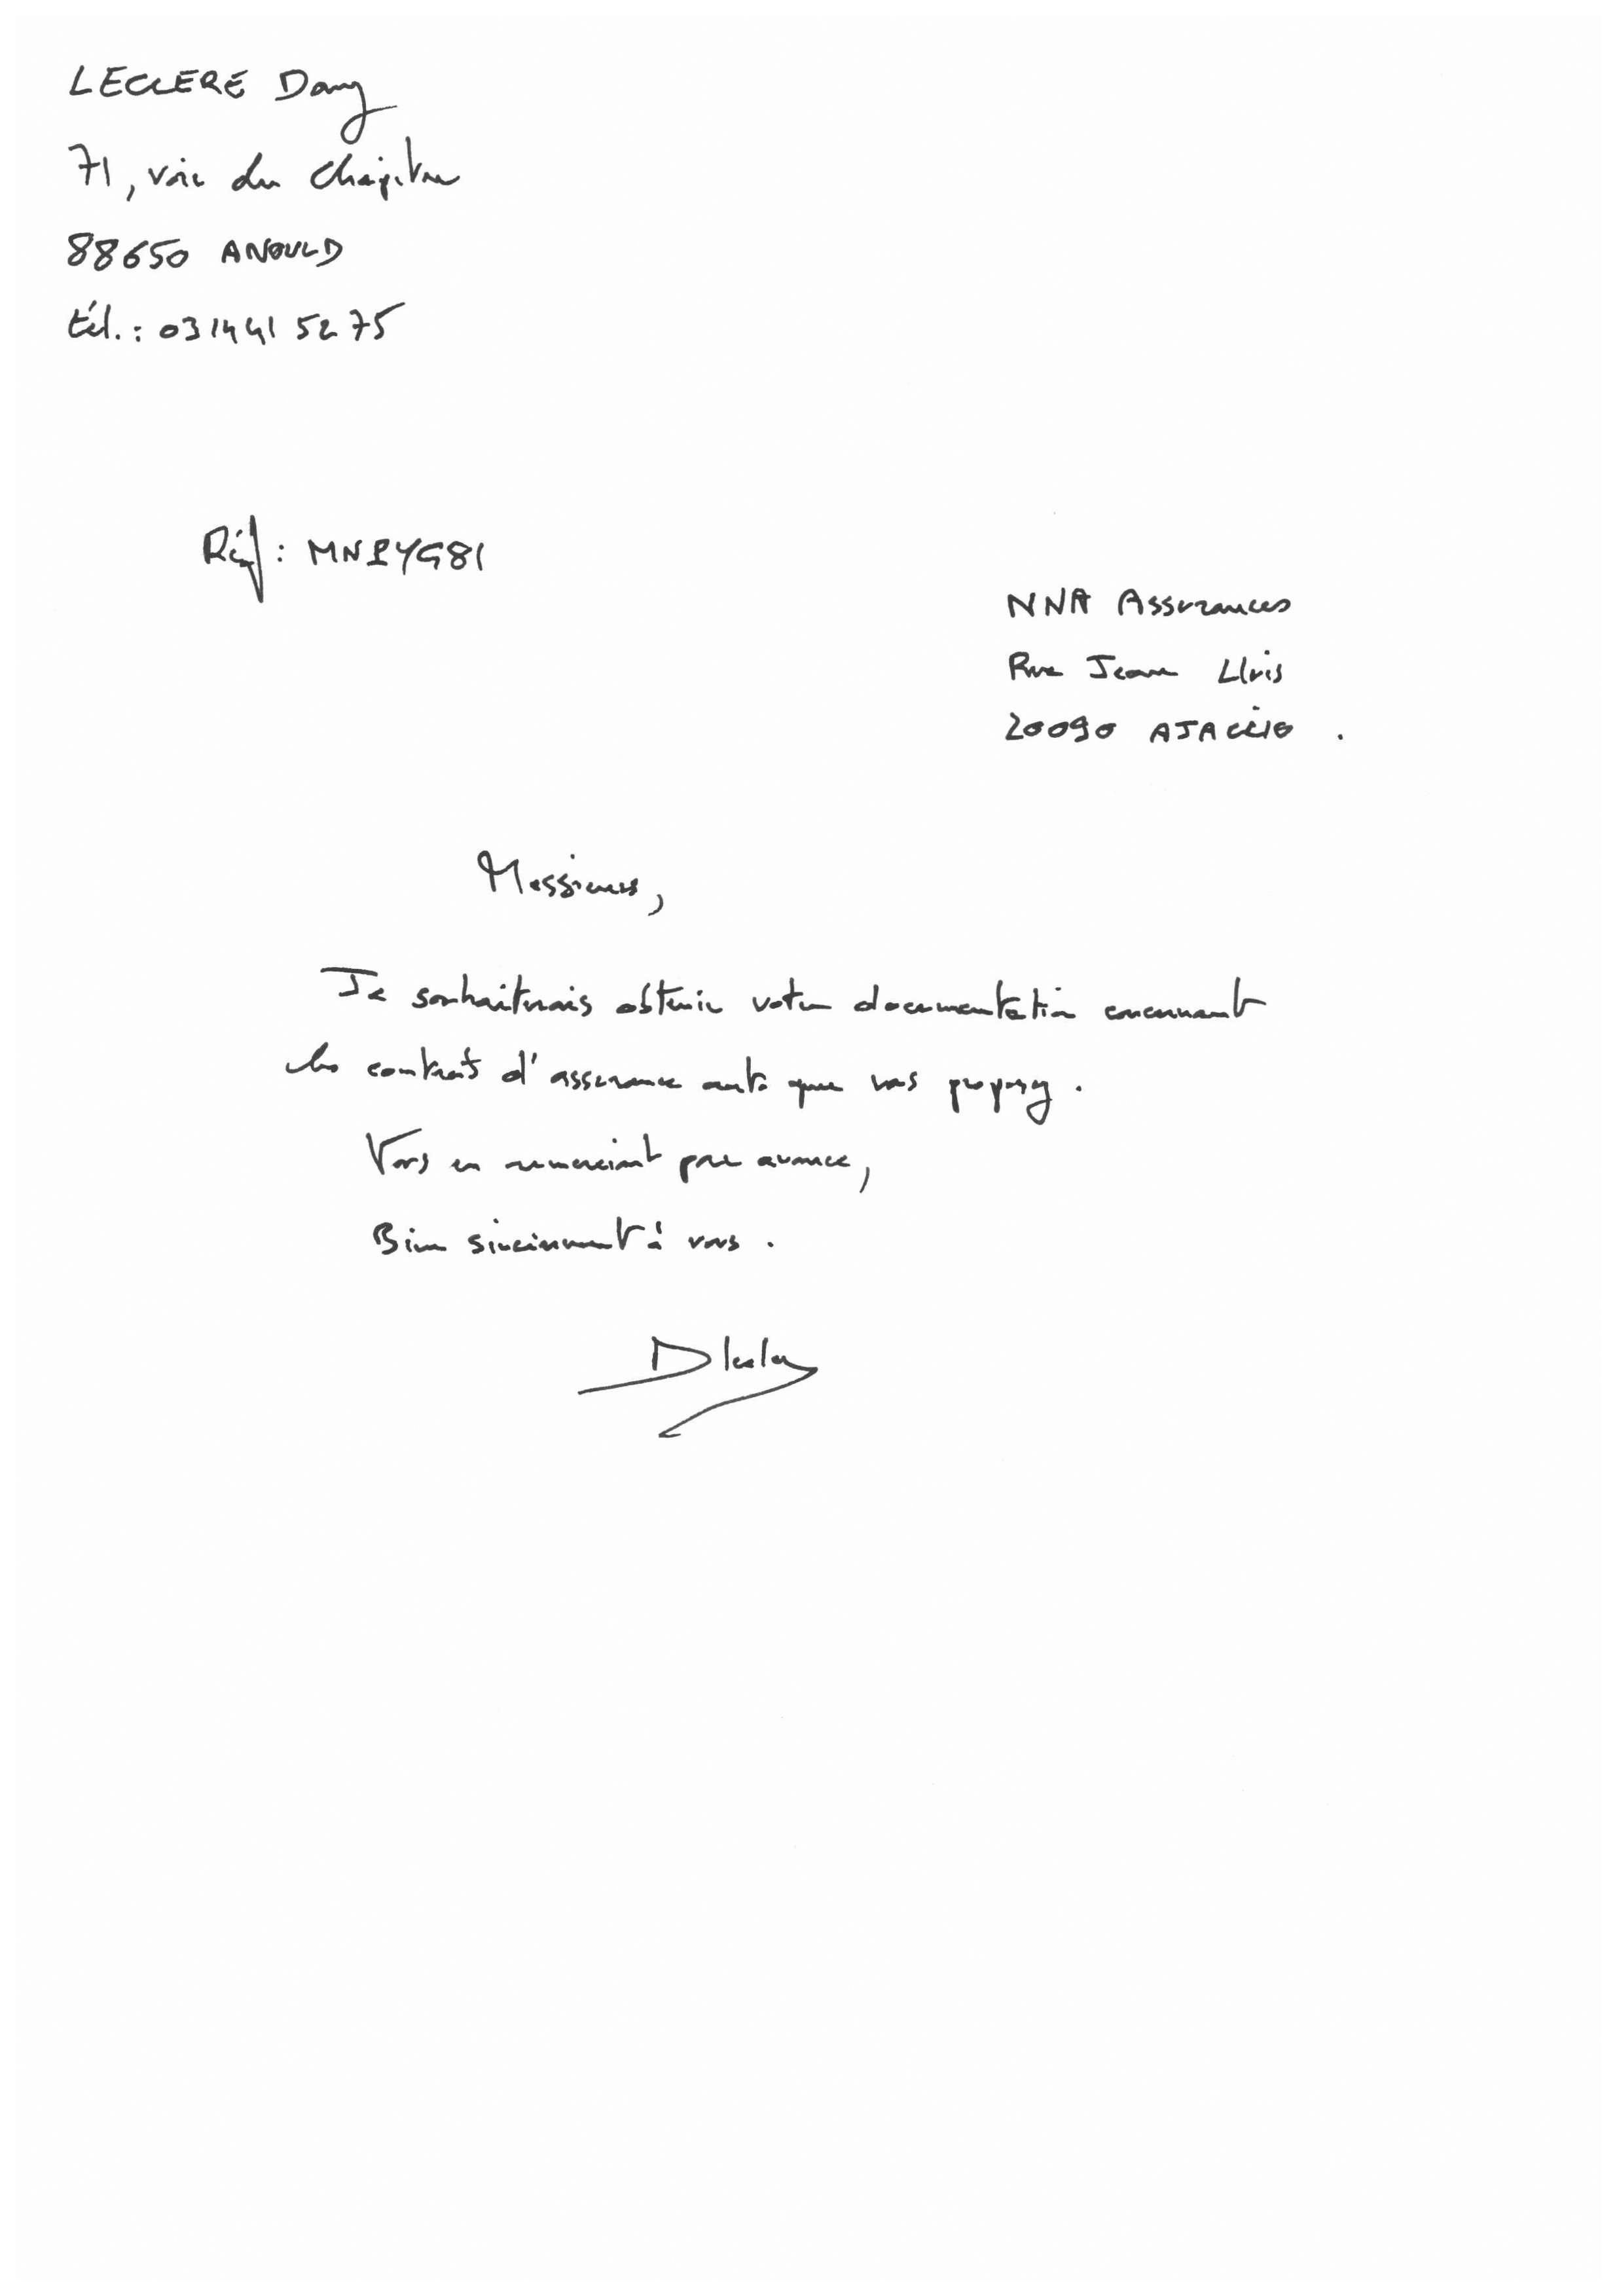 LECLERE Dany
71, voie du Chapitre
88650 ANOULD
tél. : 03 14 41 52 75
Réf : MNPYG81
NNA Assurances
Rue Jean Lluis
20090 AJACCIO .
Messieurs,
Je souhaiterais obtenir votre documentation concernant
les contrats d'assurance auto que vous proposez .
Vous en remerciant par avance,
Bien sincèrement à vous .